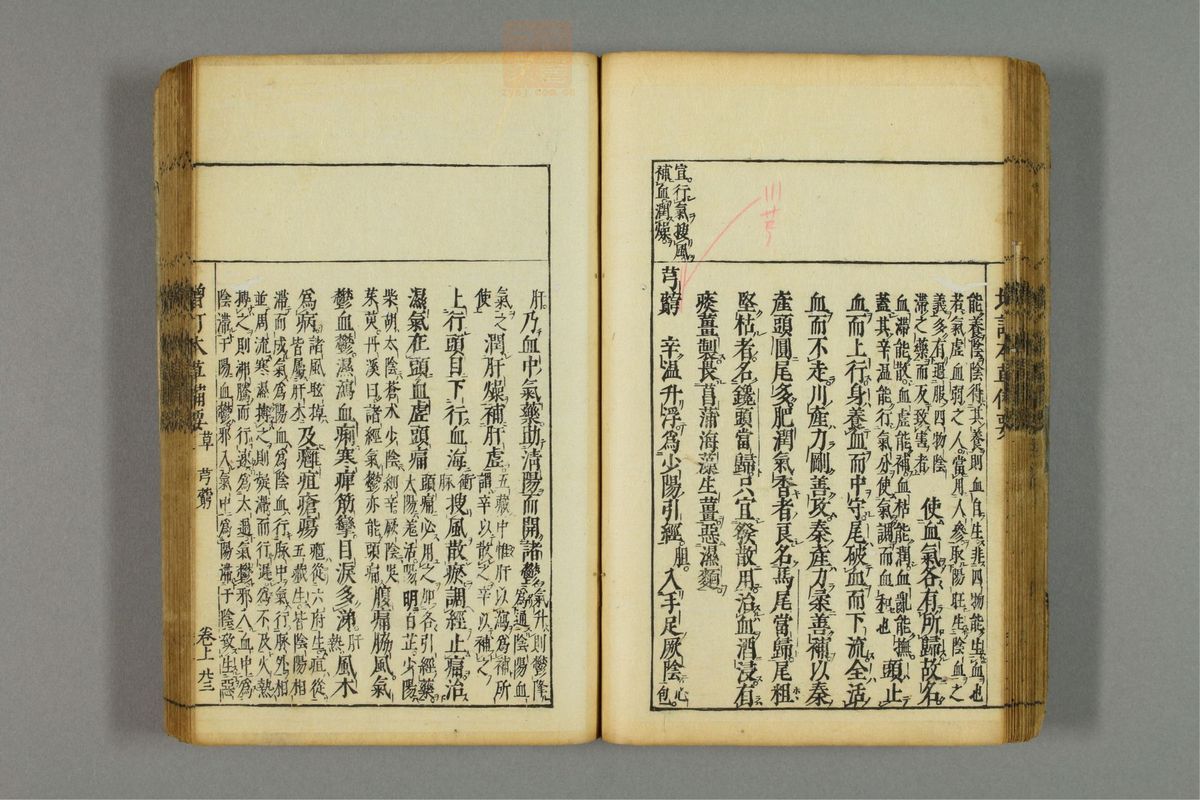 能養陰陰得其養則血自生非四物能生血也
若氣虛血弱之人當用人參取陽旺生陰血之
義多有過服四物陰
滯之藥而反致害者
使血氣各有所歸故名
血滯能散血虛能補血枯能潤血亂能撫
蓋其辛温能行氣分使氣調而血和也
頭止
血而上行身養血而中守尾破血而下流全活
血而不走川產力剛善攻秦產力柔善補以秦
產頭圓尾多肥潤氣香者良名馬尾當歸尾粗
堅枯者名鑱頭當歸只宜發散用治血酒浸有
痰薑製畏菖蒲海藻生薑惡濕麵
宜行氣搜風
補血潤燥
川芎
芎藭
辛温升浮爲少陽引經
膽
入手足厥陰
心
包
肝
乃血中氣藥助清陽而開諸鬱
氣升則鬱降
爲通陰陽血
氣之
使
潤肝燥補肝虛
五藏中惟肝以瀉爲補所
謂辛以散之辛以補之
上行頭目下行血海
衝
脉
搜風散瘀調經止痛治
濕氣在頭血虛頭痛
頭痛必用之加各引經藥
太陽羌活陽明白芷少陽
柴胡太陰蒼术少陰細辛厥陰吳
茱萸丹溪曰諸經氣鬱亦能頭痛
腹痛脇風氣
鬱血鬱濕瀉血痢寒痺筋攣目淚多涕
肝
熱
風木
爲病
諸風眩掉
皆屬肝木
及癰疽瘡瘍
癰從六府生疽從
五藏生皆陰陽相
滯而成氣爲陽血爲陰血行脉中氣行脉外相
並周流寒濕搏之則凝滯而行遲爲不及火熱
搏之則沸騰而行速爲太過氣鬱邪入血中爲
陰滯于陽血鬱邪入氣中爲陽滯于陰致生惡
增訂本草備要
草
芎藭
卷上
九三